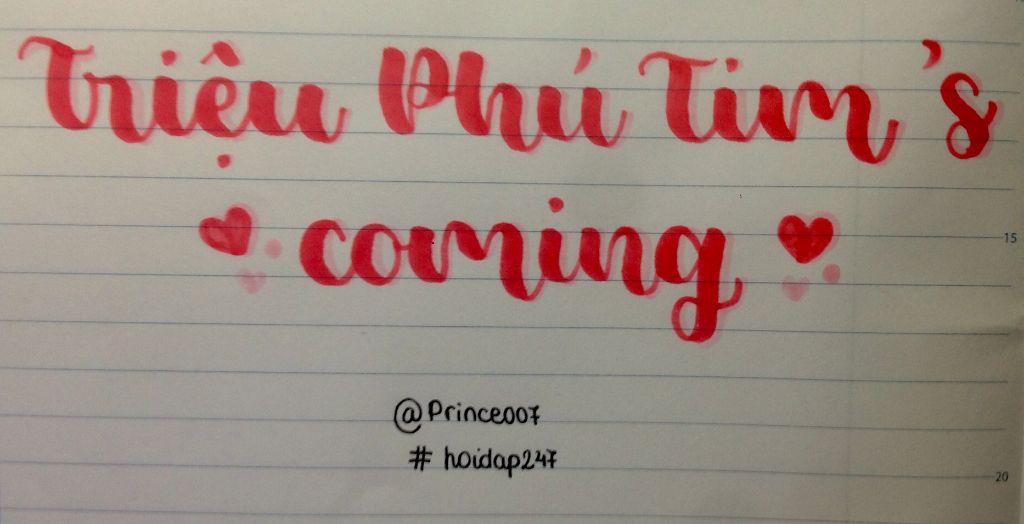 Triệu Phú Tim's
coming
@Prince007
# hoidap247
15
20